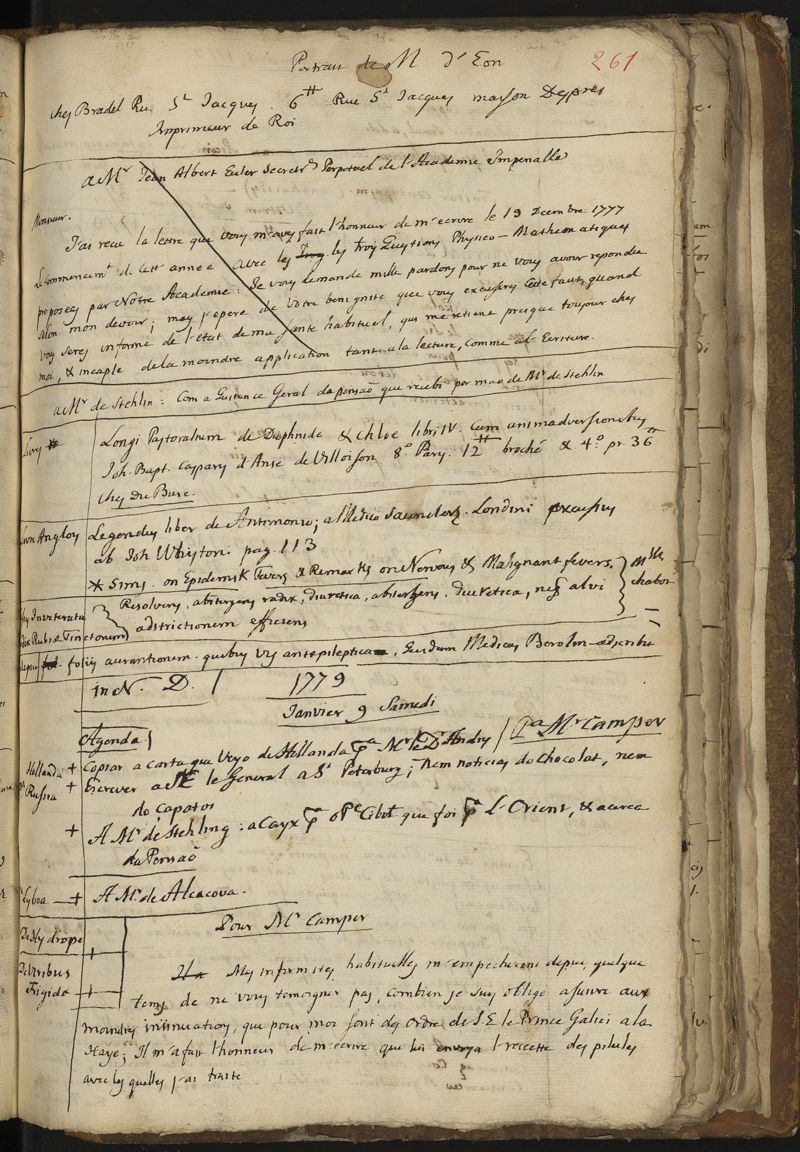 Portrait de M d'Eon 261
chez Bradel Rue St Jacques. 6# Rue St Jacques maison Depres
Imprimeur de Roi
a Mr Jean Albert Euler Secretre Perpetuel de l'Academie Imperialle
Monsieur.
J'ai recu la lettre que vous m'avez fait l'honneur de m'ecrire le 19 Decembre 1777
Le commencemt de cette annee avec les les trois Questions Physico-Mathematiques
proposees par Notre Academie: Je vous demande mille pardons pour ne vous avoir repondu
selon mon devoir; mais j'espere de votre benignité que vous excuserez cette faute, quand
vous seres informé de l'etat de ma sante habituel, qui me retiene presque toujour chez
moi, & incaple de la moindre application tant a la lecture, comme al-Ecriture.
a Mr de Stehlin: Com a Quitance Geral da pensaõ que recebi por maõ de Mr de Stehlin
Livres # Longi Pastoralium de Daphnide & Chloe libri IV. Cum animadversionibus
Joh. Bapt. Caspary d'Anse de Villoison 8.o Parys. 12# broché & 4.o pr. 36#
chez Du Bure.
Livr Anglois Legendus liber de Antimonio; a Medico Saunders. Londini excusus
ab Joh Whiston. pag. 113
* Sims. on Epidemik Fevers & Remarks on Nervous & Malignant fevers.
Resolvens, abstergens radix, diuretica, abstergens, diuretica, neq alvi
adstrictionem efficiens
foliis aurantiorum quibus vis antepileptica, Quidam Medicus Berolin adscribit
in N. D. 1779
Janvier 9 Samedi
Agenda Pa Mr Camper
Hollanda + Copiar a carta que veyo de Hollanda pa Mr le Dr Andry
Pa Russia + Escrever a SE le General a St Peterburg; Item noticias do Chocolat, nem
do Capatos
+ A Mr de Stehling: a Cayx pa o Pe Cibot que foi pa L'Orient, & acerca
da Pensaõ
Lyboa + A Mr de Alcacova.
Pour Mr Camper
De Hydrope +
De Viribus
Frigida +
Mes infirmites habituelles m'empecherent depuis quelque
tems de ne vous temoigner pas, combien je suis oblige a suivre aux
moindres insinuation, que pour moi sont des ordre de S.E le Prince Galici a la
Haye; Il m'a fait l'honneur de m'ecrire que lui envoya l'receette des pilules
avec les quelles j'ai traite